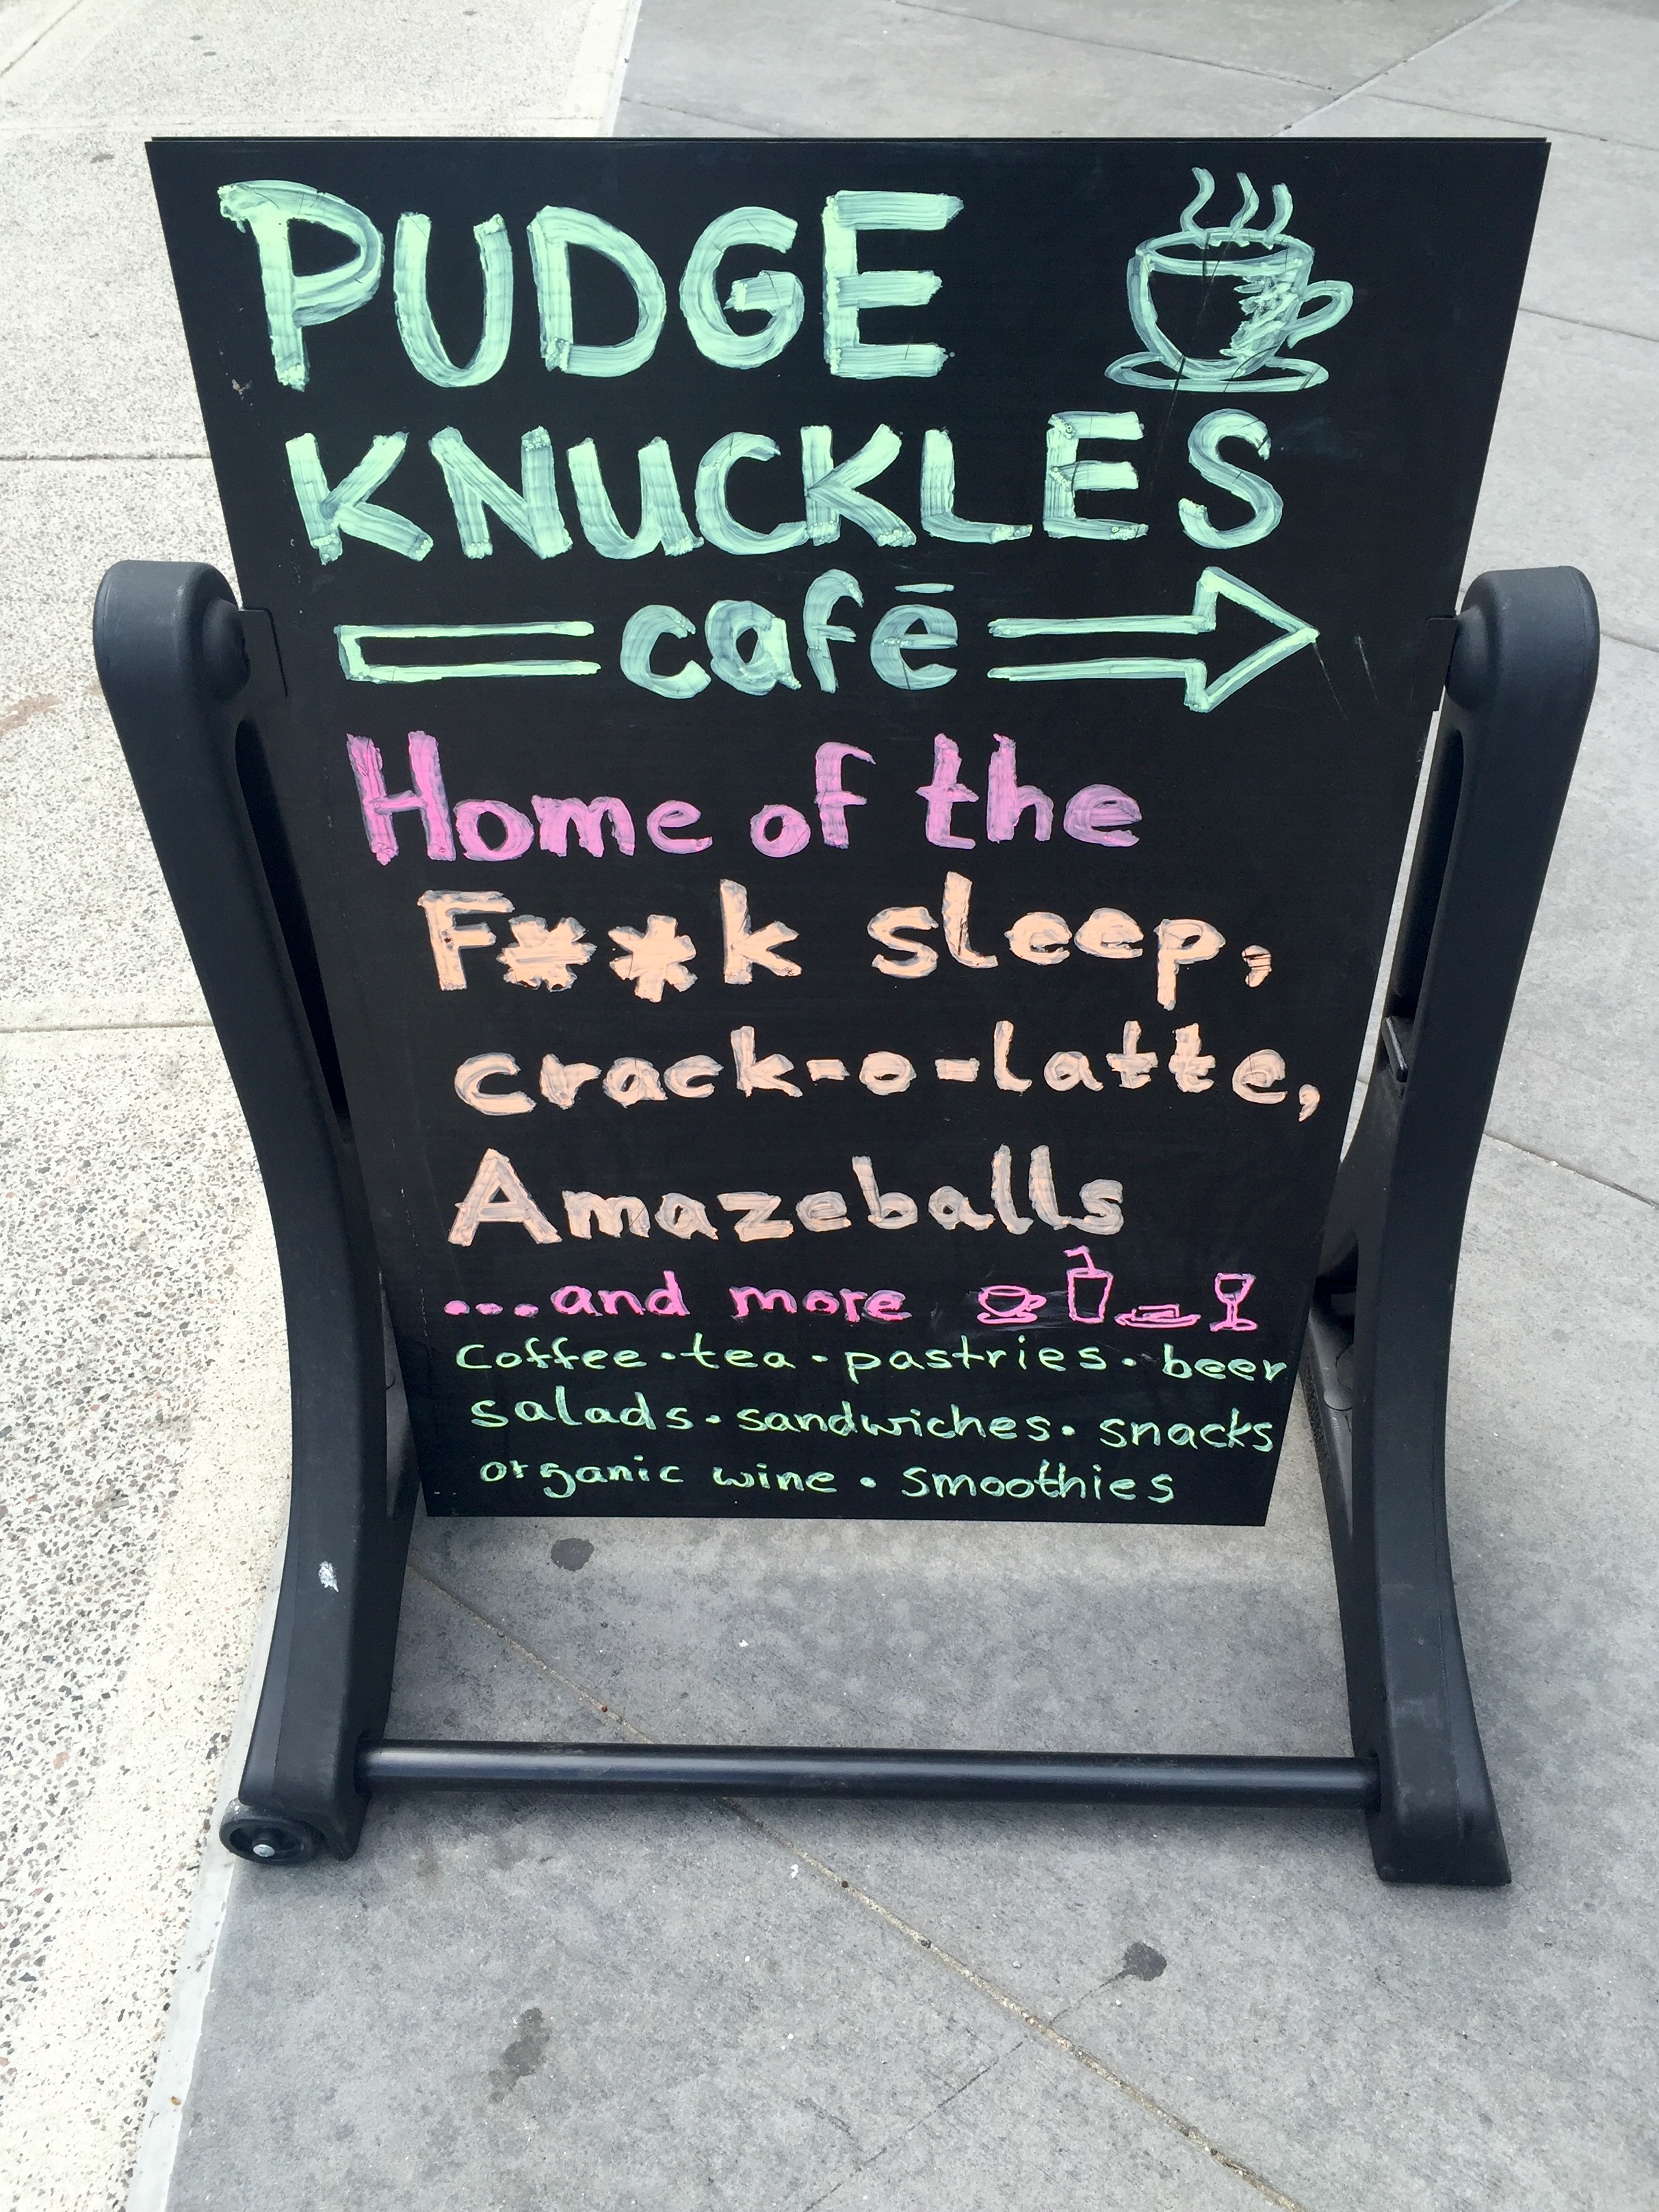 PUDGE
KNUCKLES
cafē
Home of the
F**k sleep,
crack-o-latte,
Amazeballs
...and more
coffee·tea·pastries·beer
salads·sandwiches·snacks
organic wine·smoothies